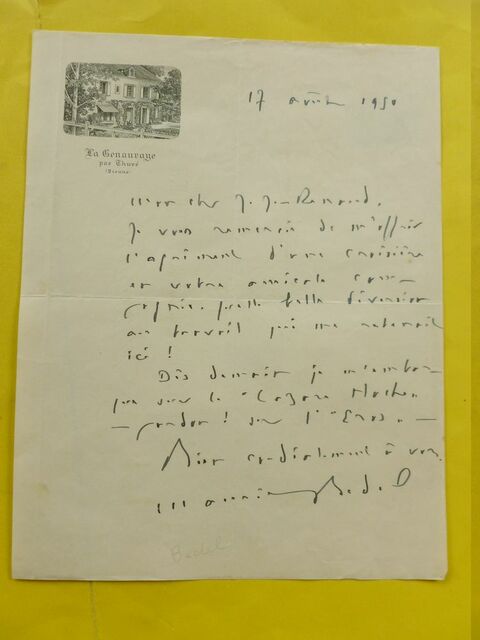 La Genauraye
par Thuré
(Vienne)
17 août 1930
Mon cher J. J.-Renaud,
Je vous remercie de m'offrir
l'agrément d'une croisière
et votre amicale com-
pagnie. Quelle belle diversion
au travail qui me retenait
ici !
Dès demain je m'embar-
que sur le "
- pardon ! sur l'"Eros. -
Bien cordialement à vous.
Maurice Bedel
Bedel